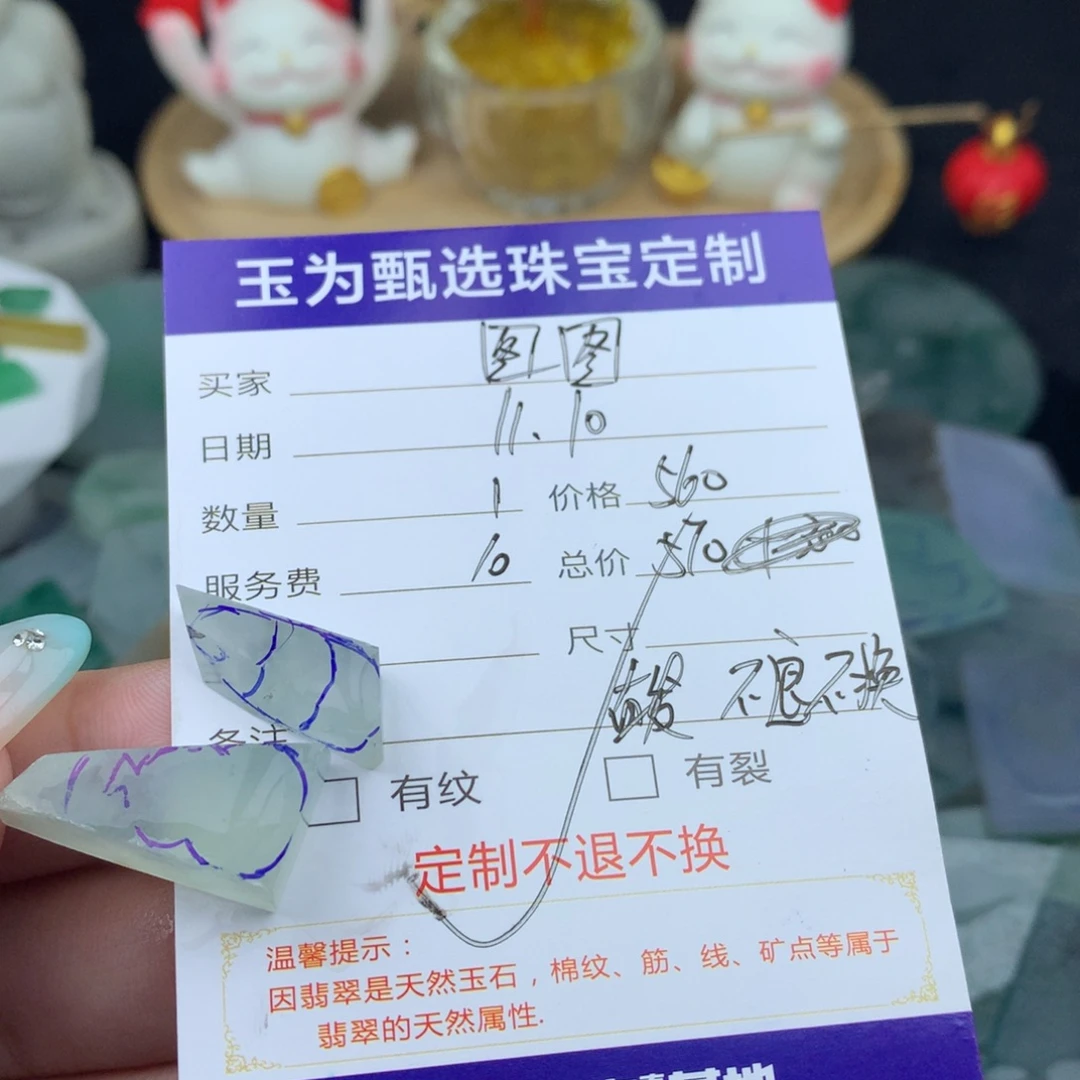 玉为甄选珠宝定制
买家 图图
日期 11.10
数量 1 价格 560
服务费 10 总价 570
尺寸
备注 直发 不退不换
有纹 有裂
定制不退不换
温馨提示：
因翡翠是天然玉石，棉纹、筋、线、矿点等属于
翡翠的天然属性.
基地